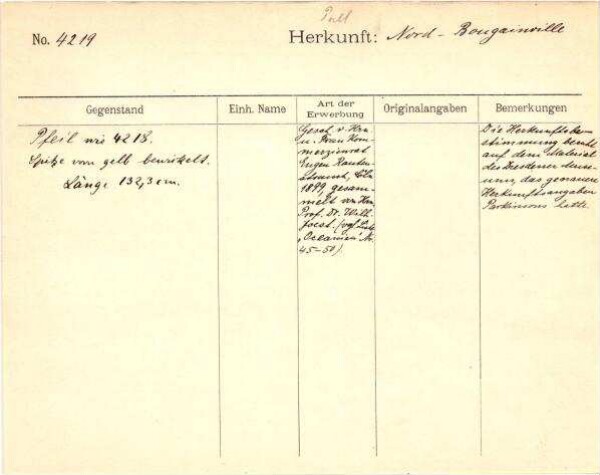 No. 4219
Herkunft: Nord-Bougainville
Gegenstand
Einh. Name
Art der
Erwerbung
Originalangaben
Bemerkungen
Pfeil wie 4218.
Spitze von gelb bewickelt.
Länge 132,3 cm.
Gesch. v. Hrn
u. Frau Kom-
merzienrat
Eugen Rauten-
strauch, Cöln
1899, gesam-
melt von Hrn
Prof. Dr. Wilh.
Joest. (vgl. Liste
"Oceanien" Nr.
45-50).
Die Herkunftsbe-
stimmung beruht
auf dem Material
des Dresdener Muse-
ums, das genauere
Herkunftsangaben
Parkinsons hatte